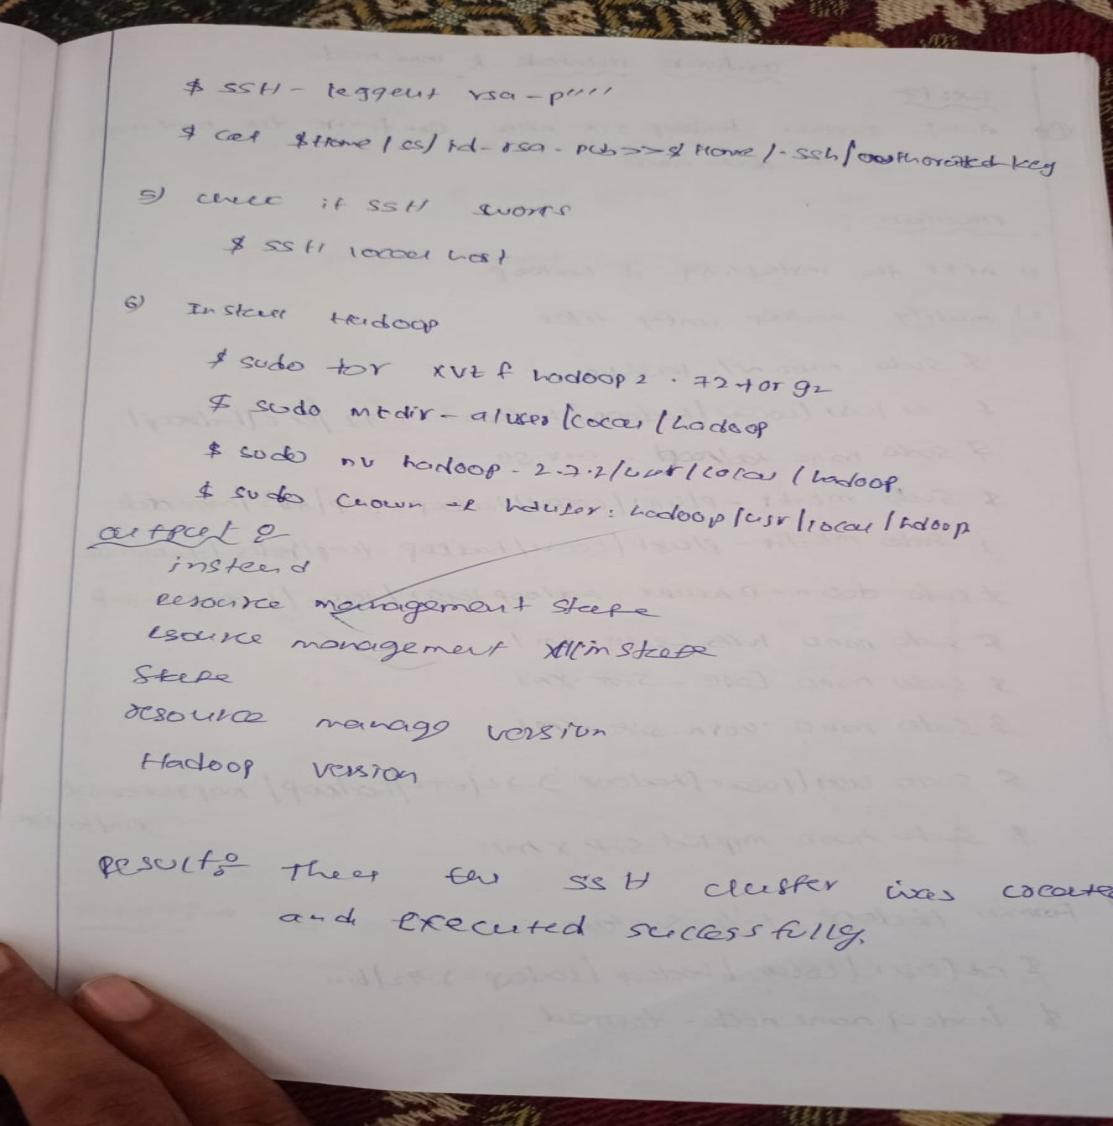 $ SSH - keggeut rsa -p""
$ cat $Home / cs/ id-rsa . pub >>$ Home /. ssh/authorcated key
5) check if SSH works
$ SSH local host
6) Install Hadoop
$ sudo tar xvz f hadoop 2 . 72 tar gz
$ sudo mkdir - a/user /local /hadoop
$ sudo mv hadoop - 2.7.2/usr/local /hadoop.
$ sudo chown -R hduser: hadoop /usr /local /hdoop
output :
instead
resource management
esource management
resource manage version
Hadoop version
Result : SSH cluster was
and executed successfully.